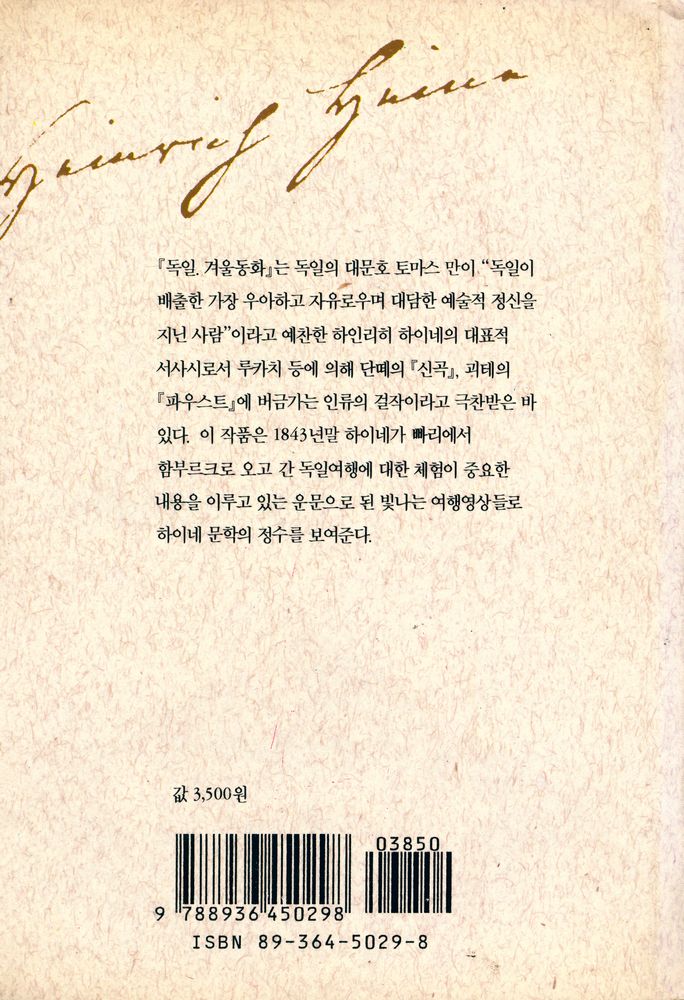 Heinrich Heine
『독일. 겨울동화』는 독일의 대문호 토마스 만이 “독일이
배출한 가장 우아하고 자유로우며 대담한 예술적 정신을
지닌 사람”이라고 예찬한 하인리히 하이네의 대표적
서사시로서 루카치 등에 의해 단떼의 『신곡』, 괴테의
『파우스트』에 버금가는 인류의 걸작이라고 극찬받은 바
있다. 이 작품은 1843년말 하이네가 빠리에서
함부르크로 오고 간 독일여행에 대한 체험이 중요한
내용을 이루고 있는 운문으로 된 빛나는 여행영상들로
하이네 문학의 정수를 보여준다.
값 3,500원
03850
9 788936 450298
ISBN 89-364-5029-8